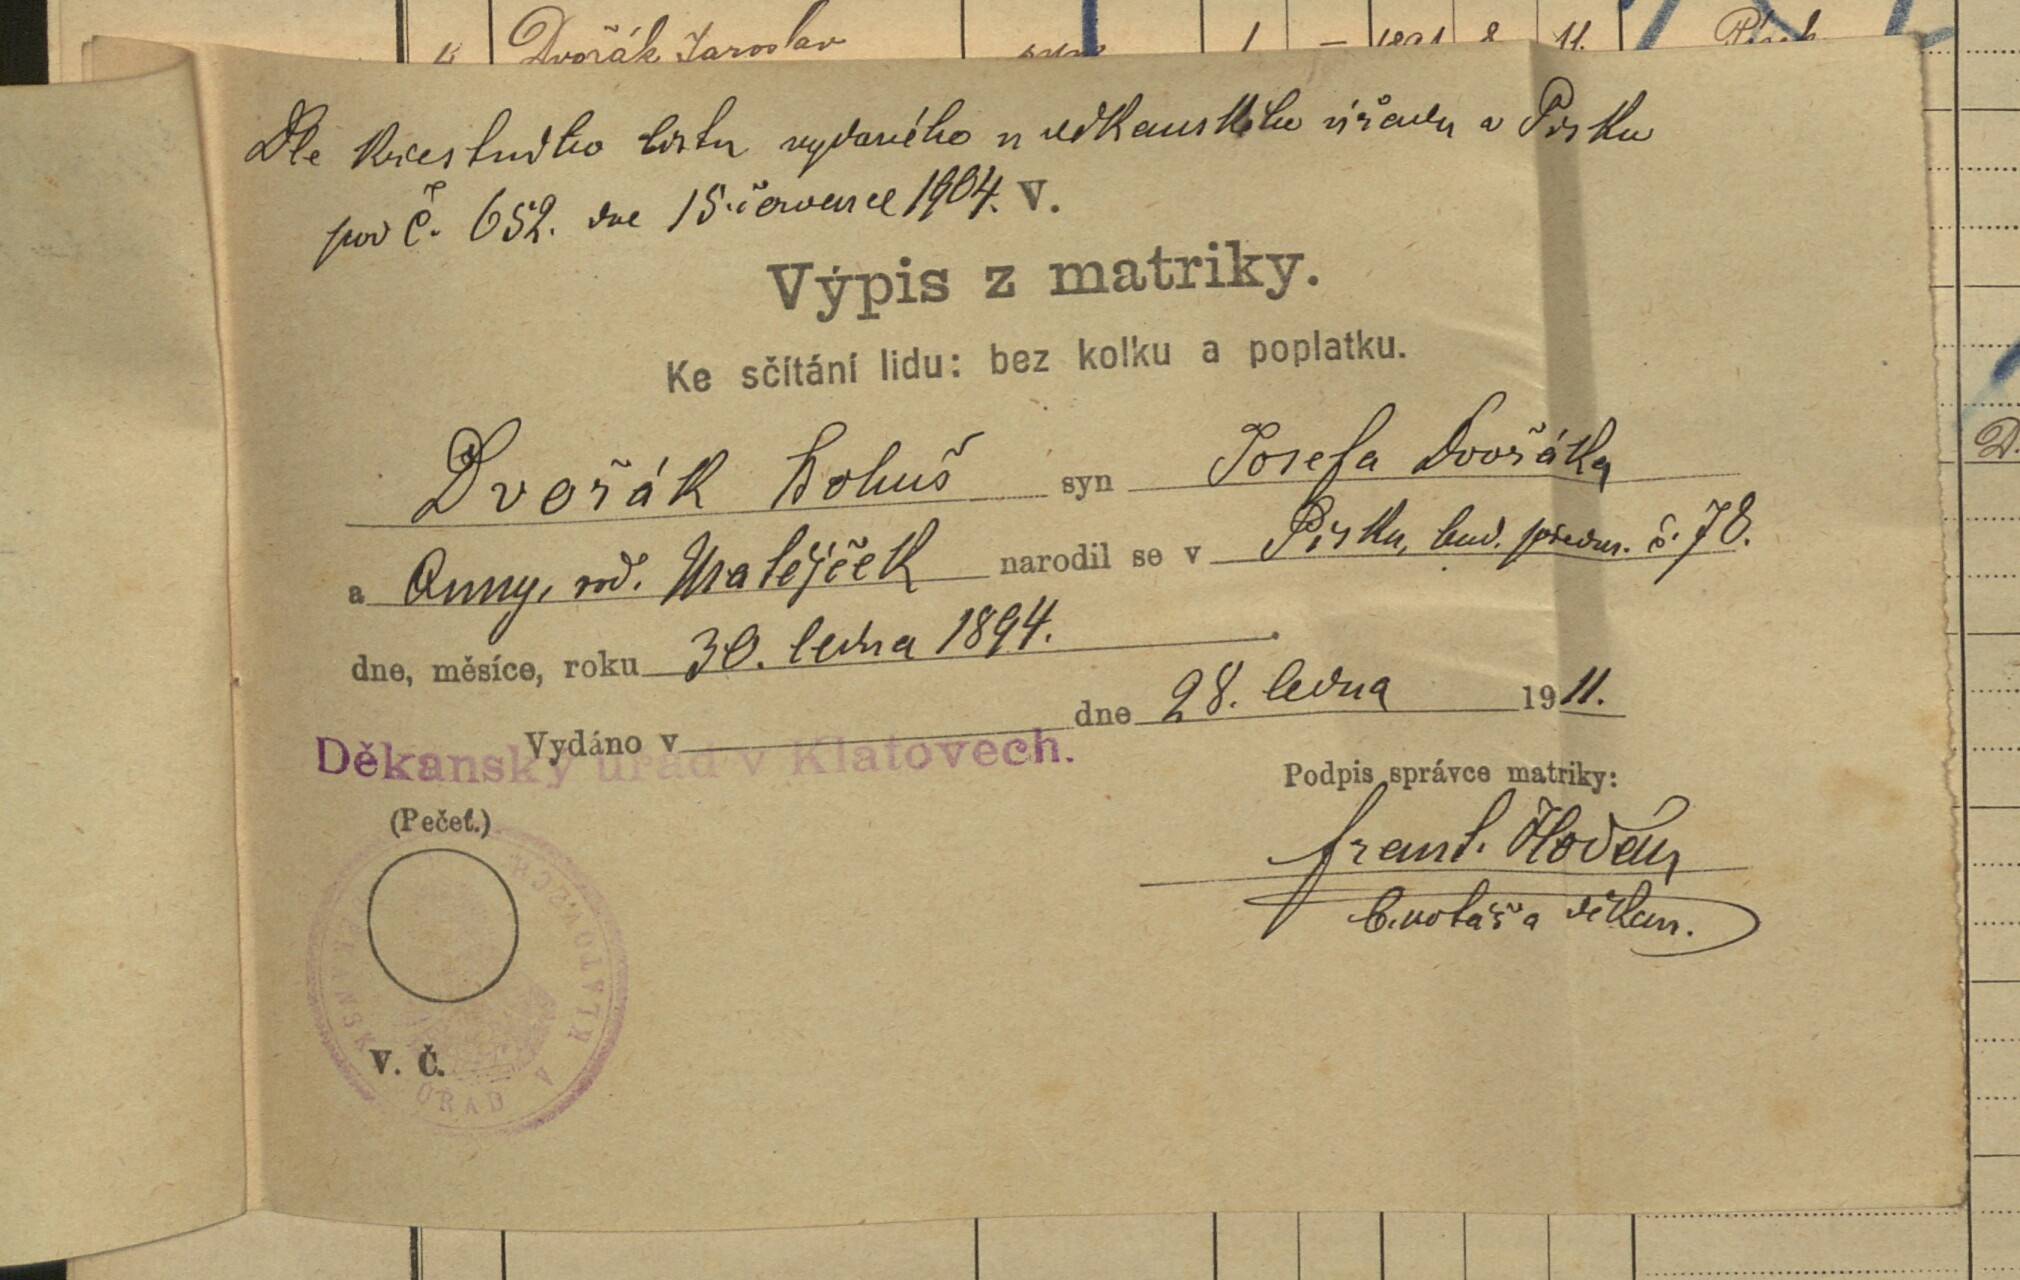 Dvořák Jaroslav syn 1 – 1891 8 11. Písek
Dle křestního listu vydaného u děkanského úřadu v Písku
pod č. 652. dne 15. července 1904. V.
Výpis z matriky.
Ke sčítání lidu: bez kolku a poplatku.
Dvořák Bohuš syn Josefa Dvořáka
a Anny, roz. Matějček narodil se v Písku, bud. předm. č. 78.
dne, měsíce, roku 30. ledna 1894.
Vydáno v dne 28. ledna 1911.
Děkanský úřad v Klatovech.
Podpis správce matriky:
(Pečeť.)
Frant. Hodán
b. notář a děkan.
DĚKANSKÝ ÚŘAD V KLATOVECH
V. Č.
D.